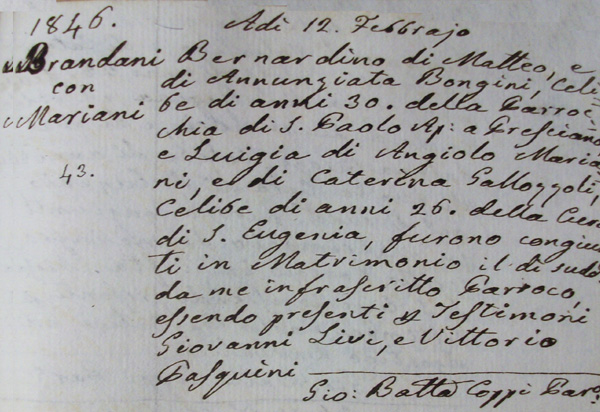 1846.
Adì 12. Febbrajo
Brandani
con
Mariani
43.
Bernardino di Matteo, e
di Annunziata Bongini, Celi-
be di anni 30. della Parroc-
chia di S. Paolo Ap: a Presciano
e Luigia di Angiolo Maria-
ni, e di Caterina Gallozzoli,
Celibe di anni 26. della Cura
di S. Eugenia, furono congiun
ti in Matrimonio il dì sudo
da me infrascritto Parroco,
essendo presenti p Testimoni
Giovanni Livi, e Vittorio
Pasquini
Gio: Batta Coppi Paro.